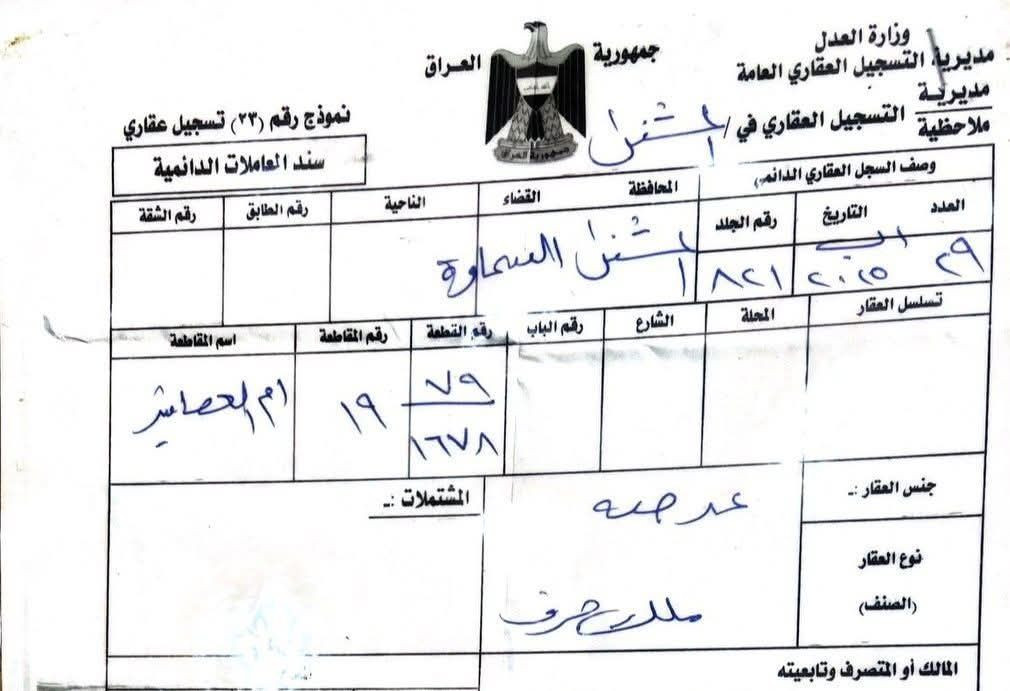 وزارة العدل
مديرية التسجيل العقاري العامة
مديرية
ملاحظية
التسجيل العقاري في /
جمهورية العراق
جمهورية العراق
نموذج رقم (٢٣) تسجيل عقاري
سند العاملات الدائمية
وصف السجل العقاري الدائمي
العدد التاريخ رقم الجلد المحافظة القضاء الناحية رقم الطابق رقم الشقة
٢٩ اب ٢٠٢٥ ٨٢١ المثنى السماوة
تسلسل العقار المحلة الشارع رقم الباب رقم القطعة رقم المقاطعة اسم المقاطعة
٧٩
١٦٧٨
١٩
ام العصافير
جنس العقار :ـ عرصه
المشتملات :ـ
نوع العقار
(الصنف)
ملك صرف
المالك أو المتصرف وتابعيته